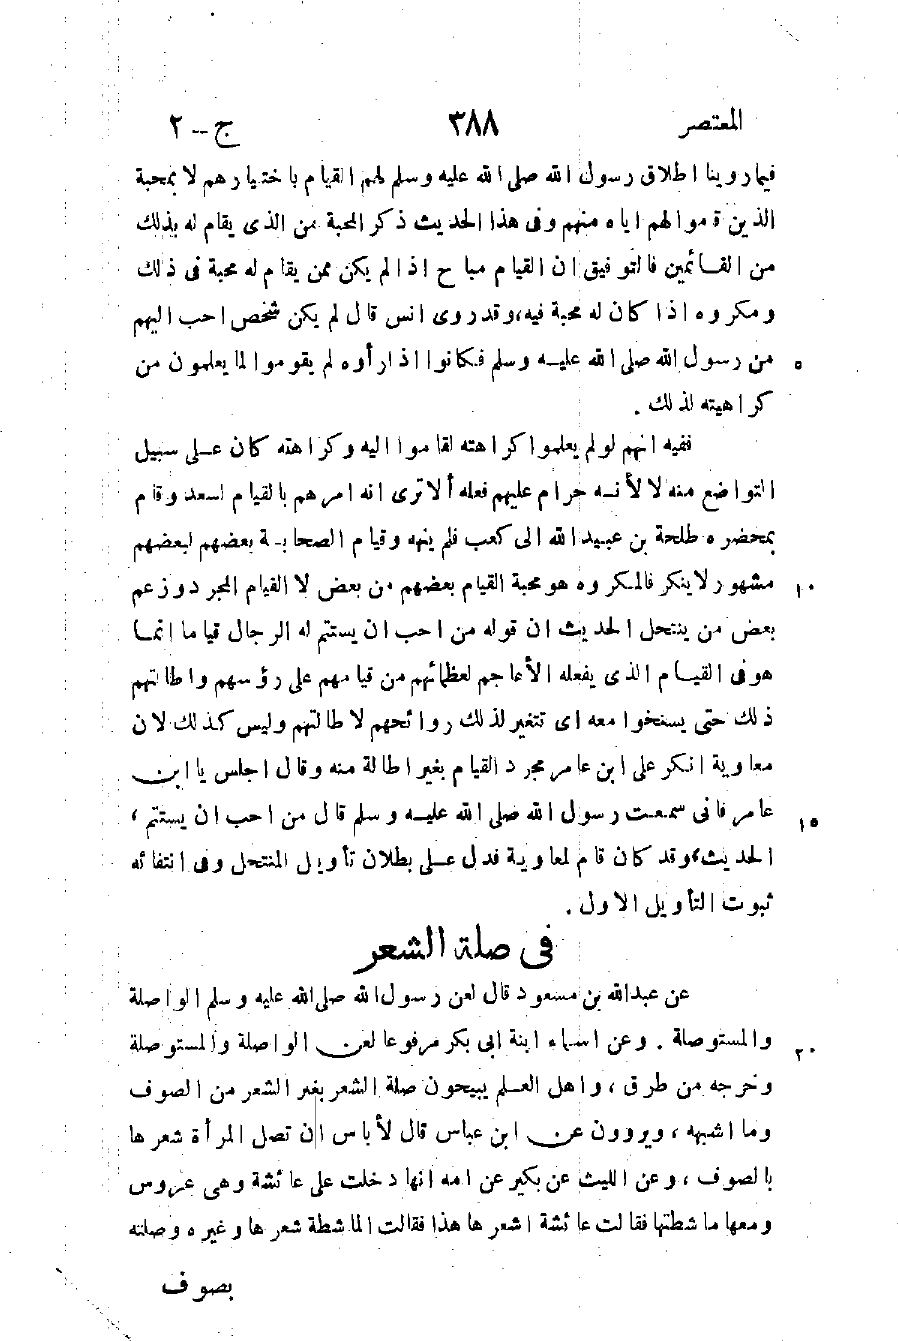 المعتصر ٣٨٨ ج-٢
فيما روينا اطلاق رسول الله صلى الله عليه وسلم لهم القيام باختيارهم لا بمحبة
الذين قاموا لهم اياه منهم وفى هذا الحديث ذكر المحبة من الذى يقام له بذلك
من القائمين فالتوفيق ان القيام مباح اذا لم يكن ممن يقام له محبة فى ذلك
ومكروه اذا كان له محبة فيه، وقد روى انس قال لم يكن شخص احب اليهم
من رسول الله صلى الله عليه وسلم فكانوا اذا رأوه لم يقوموا لما يعلمون من ٥
كراهيته لذلك .
ففيه انهم لو لم يعلموا كراهته لقاموا اليه وكراهته كان على سبيل
التواضع منه لا لأنه حرام عليهم فعله ألا ترى انه امرهم بالقيام لسعد وقام
بمحضره طلحة بن عبيد الله الى كعب فلم ينهه وقيام الصحابة بعضهم لبعضهم
مشهور لا ينكر فالمكروه هو محبة القيام بعضهم من بعض لا القيام المجرد وزعم ١٠
بعض من ينتحل الحديث ان قوله من احب ان يستتم له الرجال قياما انما
هو فى القيام الذى يفعله الأعاجم لعظمائهم من قيامهم على رؤسهم واطالتهم
ذلك حتى يسنخوا معه اى تتغير لذلك روائحهم لاطالتهم وليس كذلك لان
معاوية انكر على ابن عامر مجرد القيام بغير اطالة منه وقال اجلس يا ابن
عامر فانى سمعت رسول الله صلى الله عليه وسلم قال من احب ان يستتم، ١٥
الحديث، وقد كان قام لمعاوية فدل على بطلان تأويل المنتحل وفى انتفائه
ثبوت التأويل الاول .
فى صلة الشعر
عن عبدالله بن مسعود قال لعن رسول الله صلى الله عليه وسلم الواصلة
والمستوصلة . وعن اسماء ابنة ابى بكر مرفوعا لعن الواصلة والمستوصلة ٢٠
وخرجه من طرق ، واهل العلم يبيحون صلة الشعر بغير الشعر من الصوف
وما اشبهه ، ويروون عن ابن عباس قال لأباس ان تصل المرأة شعرها
بالصوف ، وعن الليث عن بكير عن امه انها دخلت على عائشة وهى عروس
ومعها ماشطتها فقالت عائشة اشعرها هذا فقالت الماشطة شعرها وغيره وصلته
بصوف